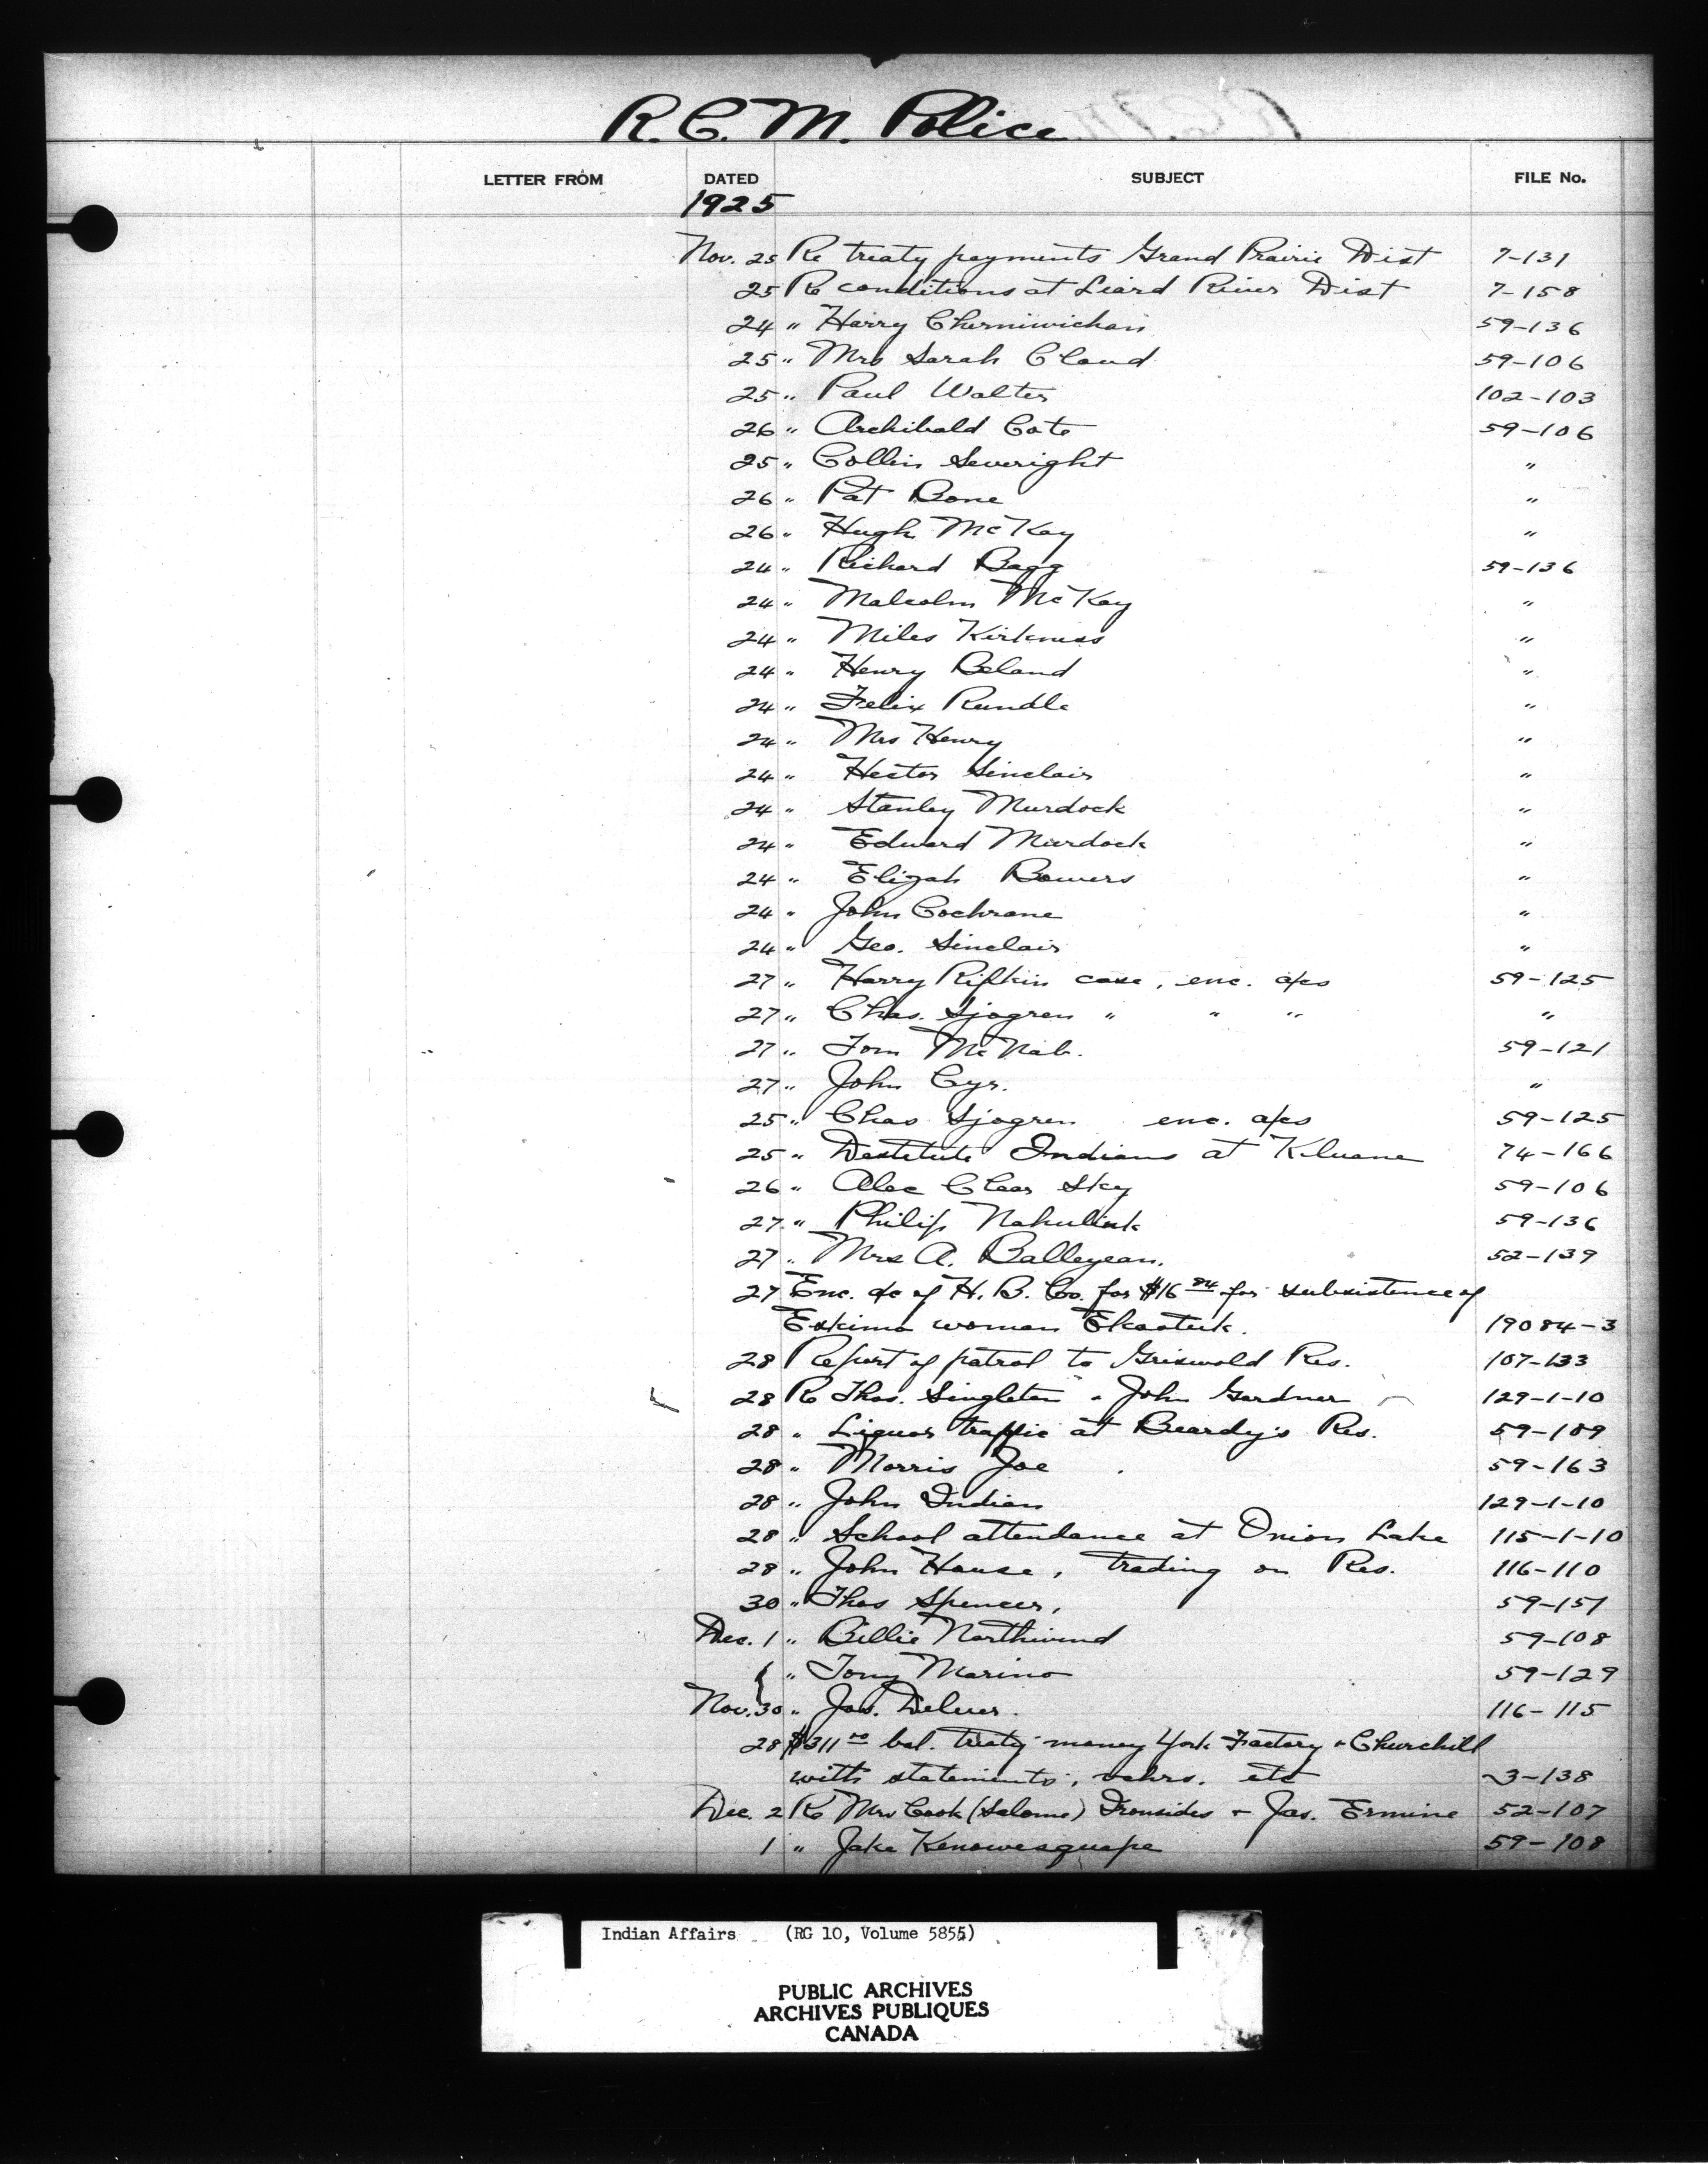 R.C.M. Police
LETTER FROM DATED SUBJECT FILE No.
1925
Nov. 25 Re treaty payments Grand Prairie Dist 7-131
25 Re conditions at Liard River Dist 7-158
24 " Harry Cherniwichan 59-136
25 " Mrs Sarah Cloud 59-106
25 " Paul Walter 102-103
26 " Archibald Cote 59-106
25 " Collin Severight "
26 " Pat Bone "
26 " Hugh McKay "
24 " Richard Bagg 59-136
24 " Malcolm McKay "
24 " Miles Kirkness "
24 " Henry Beland "
24 " Felix Rundle "
24 " Mrs Henry "
24 " Hester Sinclair "
24 " Stanley Murdock "
24 " Edward Murdock "
24 " Elijah Bowers "
24 " John Cochrane "
24 " Geo. Sinclair "
27 " Harry Rifkin case, enc. a/cs 59-125
27 " Chas. Sjogren " " " "
27 " Tom McNab. 59-121
27 " John Cyr. "
25 " Chas Sjogren enc. a/cs 59-125
25 " Destitute Indians at Kluane 74-166
26 " Alec Clear Sky 59-106
27 " Philip 59-136
27 " Mrs A. Balleyean. 52-139
27 Enc. a/c of H. B. Co. for $16 84 for subsistence of
Eskimo woman 19084-3
28 Report of patrol to Griswold Res. 107-133
28 Re Thos. Singleton & John Gardner 129-1-10
28 " Liquor traffic at Beardy's Res. 59-109
28 " Morris Joe 59-163
28 " John Indian 129-1-10
28 " School attendance at Onion Lake 115-1-10
28 " John House, trading on Res. 116-110
30 " Thos Spencer, 59-151
Dec. 1 " Billie Northwind 59-108
{ " Tony Marino 59-129
Nov. 30 " Jas. 116-115
28 $311 00 bal. treaty money York Factory & Churchill
with statements, vchrs. etc 3-138
Dec. 2 Re Mrs Cook (Salome) Ironsides & Jas. Ermine 52-107
1 " Jake Kenowesquape 59-108
Indian Affairs (RG 10, Volume 5855)
PUBLIC ARCHIVES
ARCHIVES PUBLIQUES
CANADA